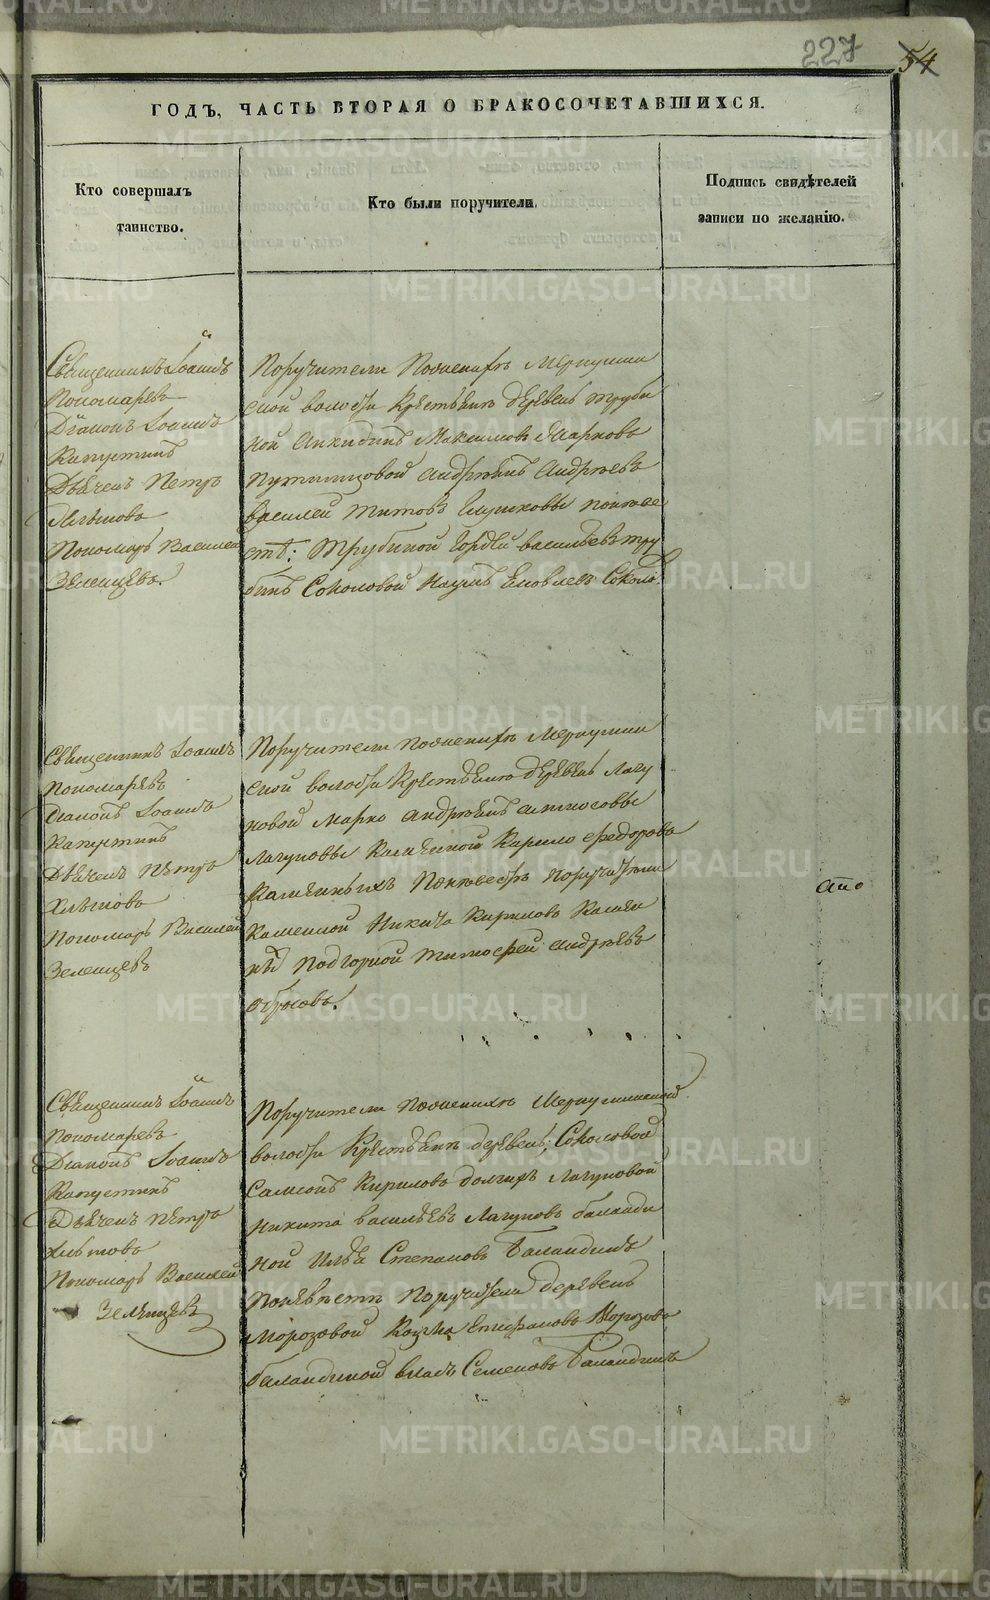 227
54
ГОДЪ, ЧАСТЬ ВТОРАЯ О БРАКОСОЧЕТАВШИХСЯ.
Кто совершалъ
таинство.
Кто были поручители.
Подпись свидѣтелей
записи по желанію.
Священникъ Іоаннъ
Пономаревъ
Діаконъ Іоаннъ
Капустинъ
Дьячекъ Петръ
Хлѣповъ
Пономарь Василей
Зеленцевъ.
Поручители По женихѣ Меркушин
ской волости Крестьяне деревень Труби
ной Максимовъ Марковъ
Андреянъ Андреевъ
Василей Титовъ Глушковы по невѣ
стѣ: Трубиной Гордѣй Васильевъ Тру
бинъ Соколовой Наумъ Яковлевъ Соколо
Священникъ Іоаннъ
Пономаревъ
Діаконъ Іоаннъ
Капустинъ
Дьячекъ Петръ
Пономарь Василей
Зеленцевъ
Поручители По женихѣ Меркушин
ской волости Крестьяне деревень Лагу
новой Марко Андреянъ
Лагуновы Каменной Кирило Федоровъ
Каменныхъ По невѣстѣ поручители
Каменной Никита Кириловъ Камен
Подгорной Тимофей Андреевъ
Священникъ Іоаннъ
Пономаревъ
Діаконъ Іоаннъ
Капустинъ
Дьячекъ Петръ
Пономарь Василей
Зеленцевъ
Поручители По женихѣ Меркушинской
волости Крестьяне деревень, Соколовой
Самсонъ Кириловъ Долгихъ Лагуновой
Никита Васильевъ Лагуновъ Баланди
ной Илья Степановъ Баландинъ
По невѣстѣ Поручители деревень
Морозовой Козма Епифановъ Морозовъ
Баландиной Власъ Семеновъ Баландинъ
METRIKI.GASO-URAL.RU